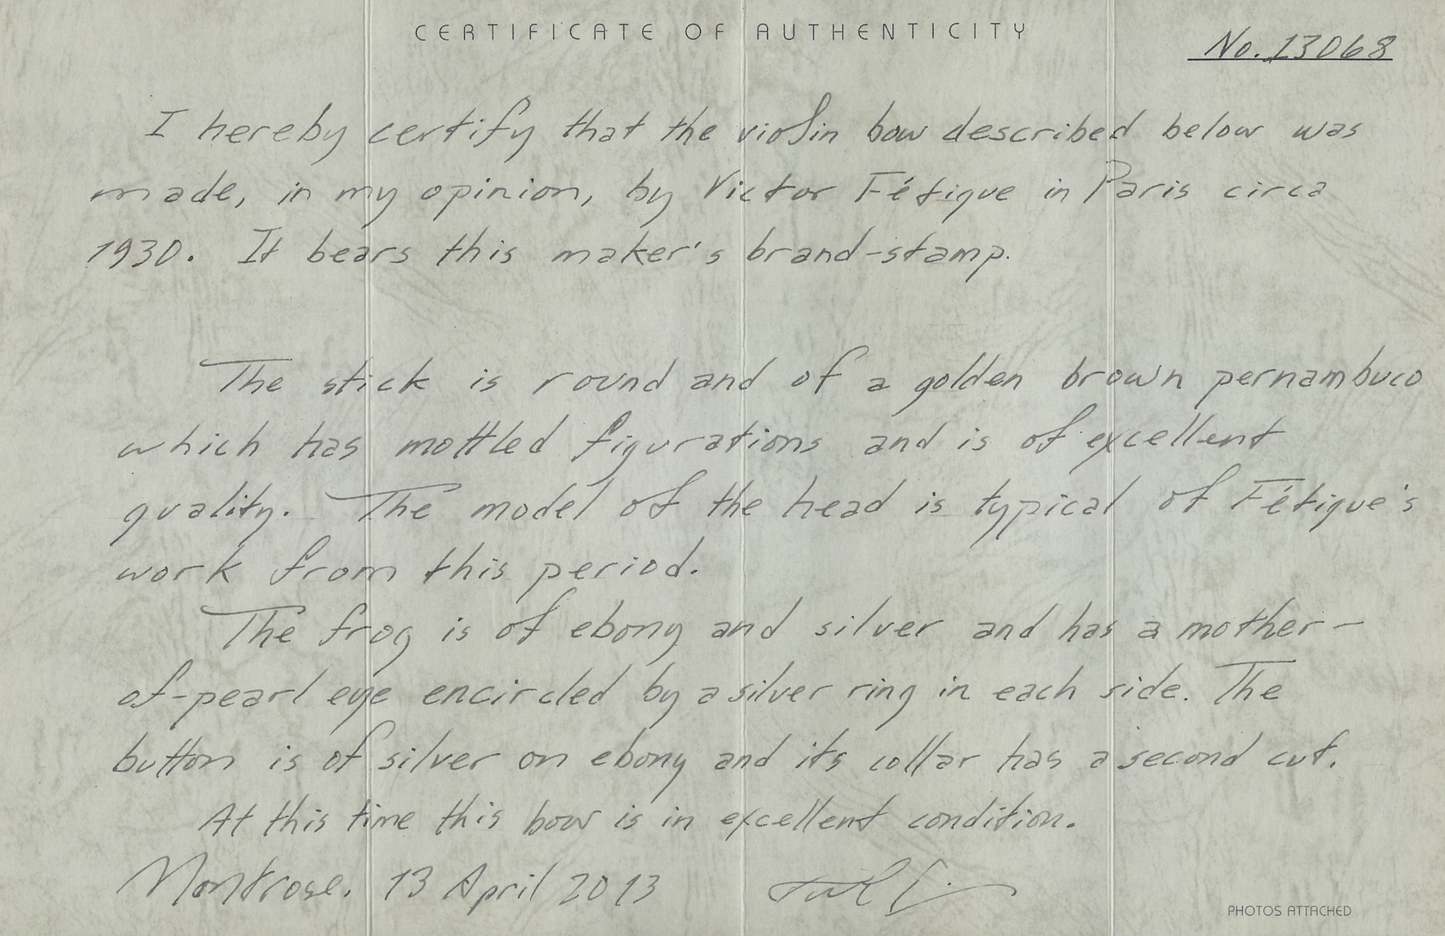 CERTIFICATE OF AUTHENTICITY
No. 13068
I hereby certify that the violin bow described below was
made, in my opinion, by Victor Fétique in Paris circa
1930. It bears this maker's brand-stamp.
The stick is round and of a golden brown pernambuco
which has mottled figurations and is of excellent
quality. The model of the head is typical of Fétique's
work from this period.
The frog is of ebony and silver and has a mother-
of-pearl eye encircled by a silver ring in each side. The
button is of silver on ebony and its collar has a second cut.
At this time this bow is in excellent condition.
Montrose. 13 April 2013
PHOTOS ATTACHED